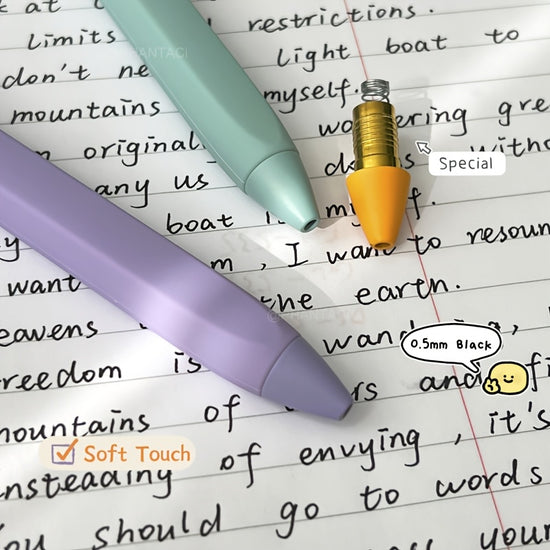 k at
restrictions.
Limits
light boat to
don't ne
myself.
mountains
wondering gre
original
Special
any us
boat
myself.
m, I want to resoun
want
the earth.
eavens
wandering,
0.5mm Black
reedom is
rs and fi
mountains of
Soft Touch
of envying, it's
insteading
You should go to words
your